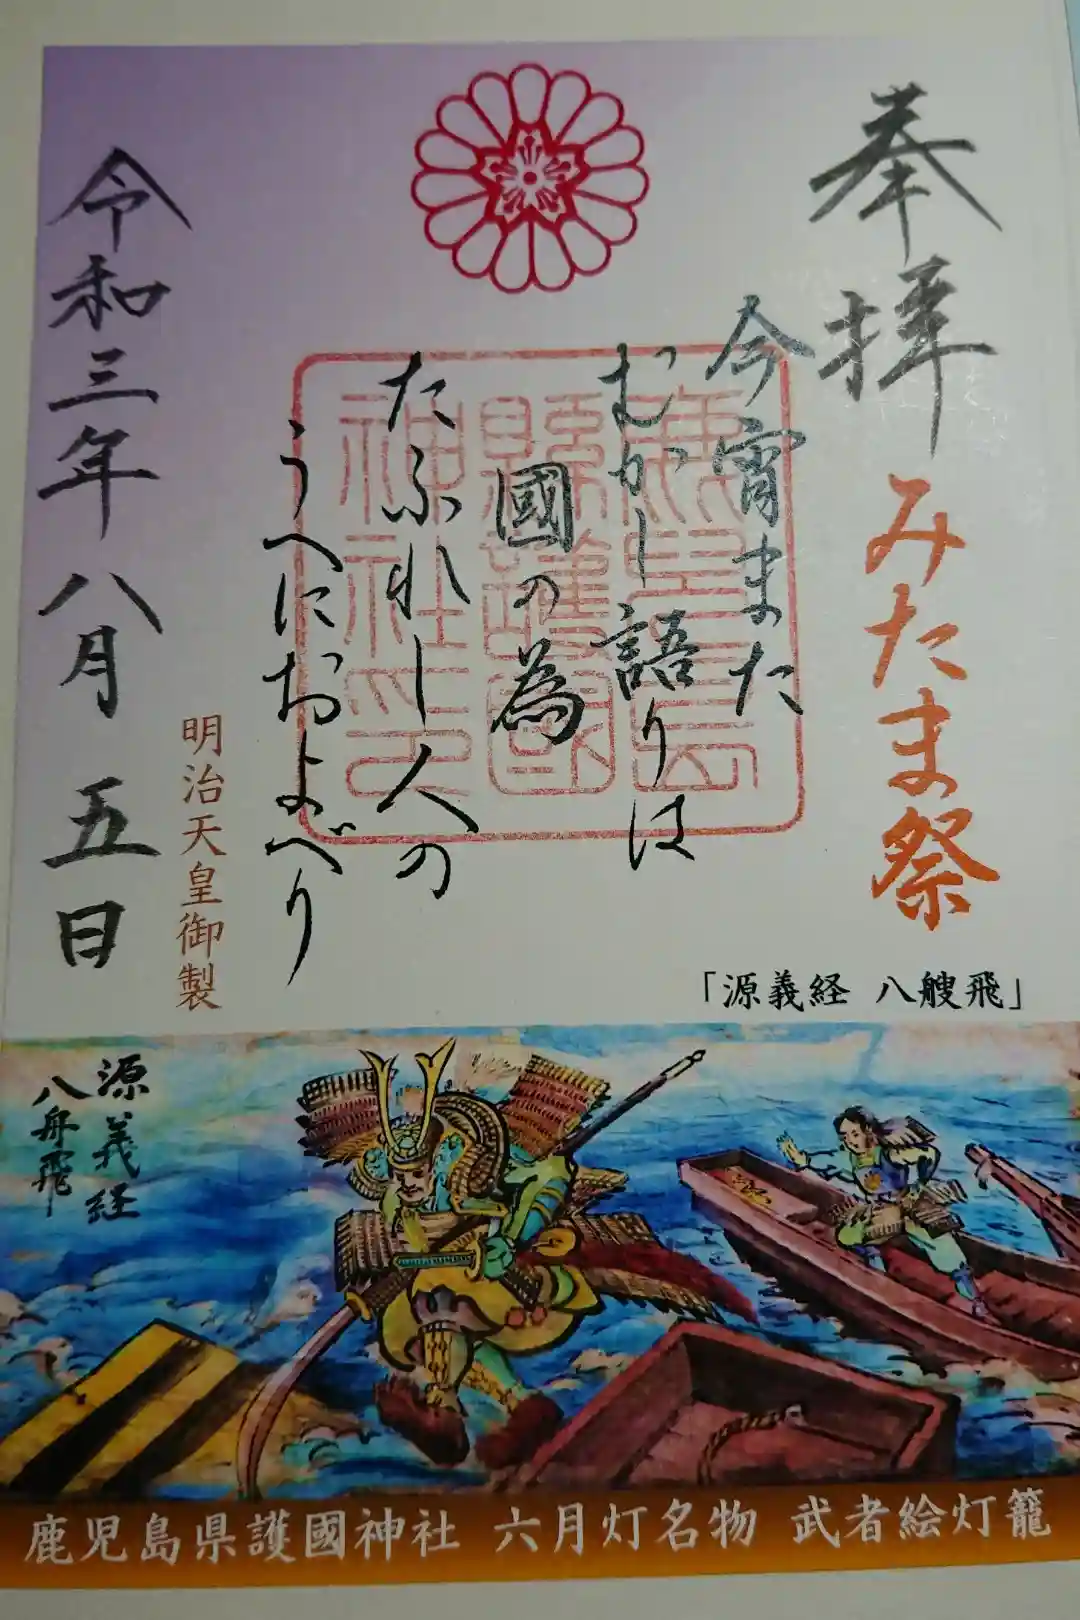 奉拝 みたま祭
今宵また
むかし語りは
國の為
たふれし人の
うへにおよべり
明治天皇御製
令和三年八月五日
鹿児島
縣護國
神社之印
「源義経 八艘飛」
源義経
八舟飛
鹿児島県護國神社 六月灯名物 武者絵灯籠